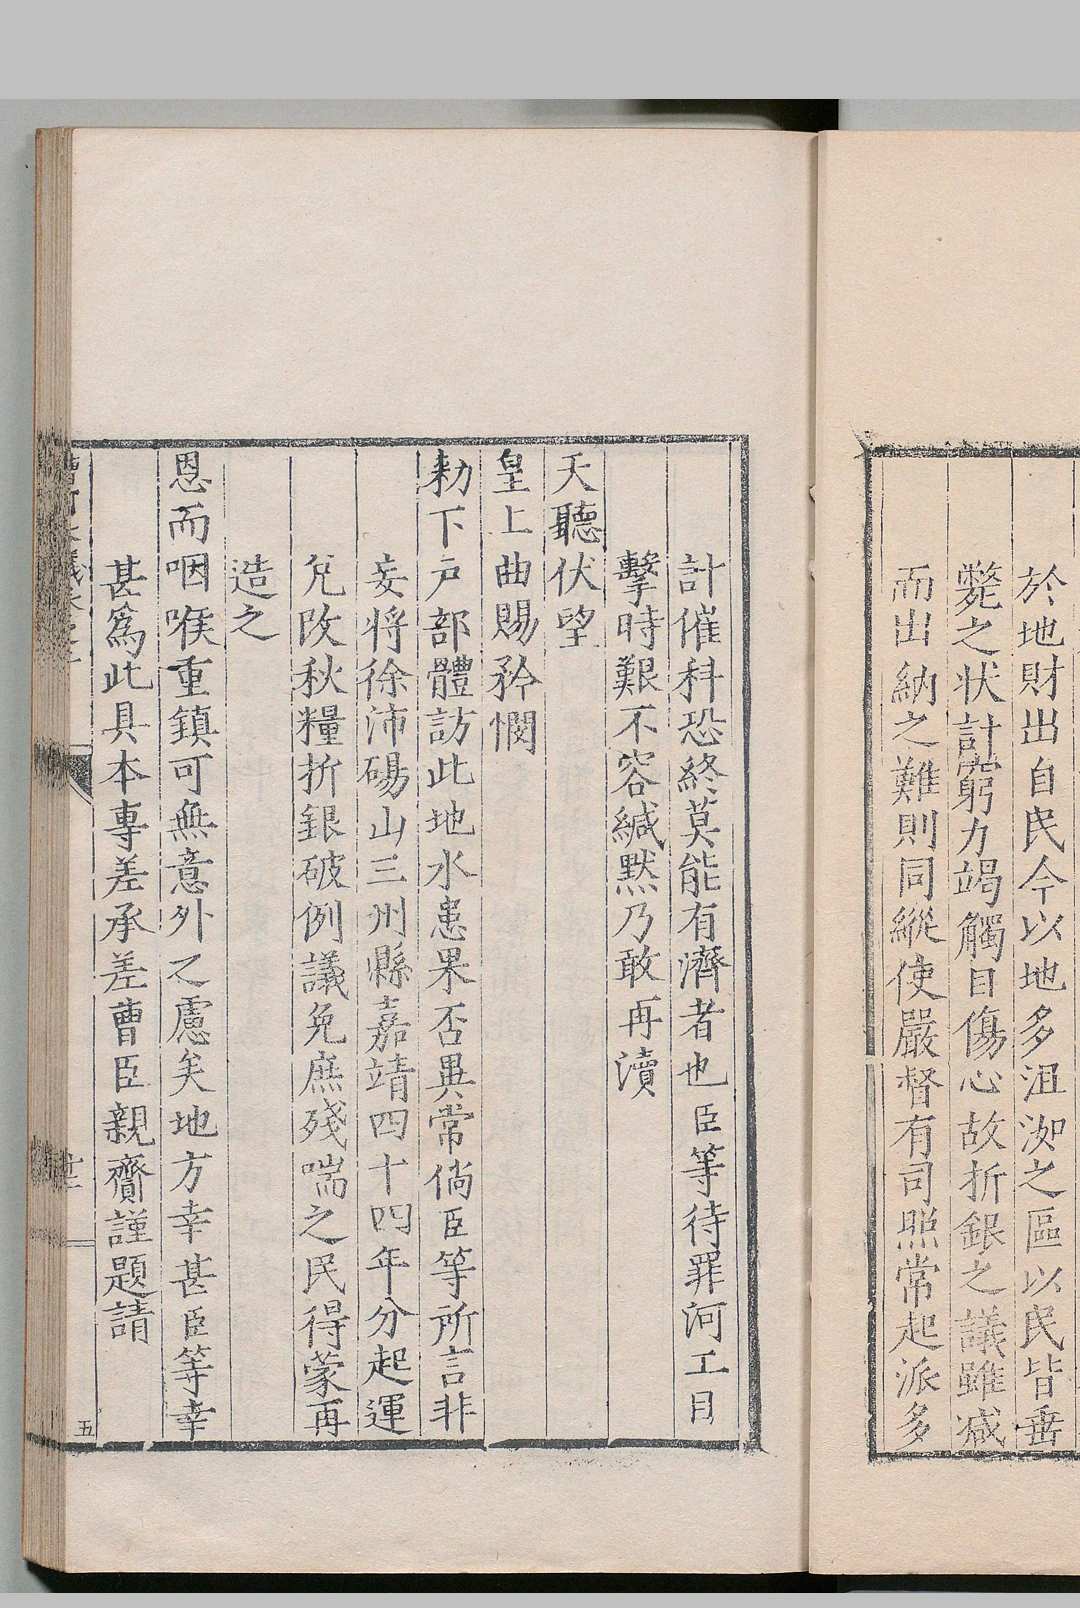 於地財出自民今以地多沮洳之區以民皆垂
斃之狀計窮力竭觸目傷心故折銀之議雖減
而出納之難則同縱使嚴督有司照常起派多
計催科恐終莫能有濟者也臣等待罪河工目
擊時艱不容緘默乃敢再瀆
天聽伏望
皇上曲賜矜憫
勑下戶部體訪此地水患果否異常倘臣等所言非
妄將徐沛碭山三州縣嘉靖四十四年分起運
兌改秋糧折銀破例議免庶殘喘之民得蒙再
造之
恩而咽喉重鎮可無意外之慮矣地方幸甚臣等幸
甚爲此具本專差承差曹臣親齎謹題請
廿二
五